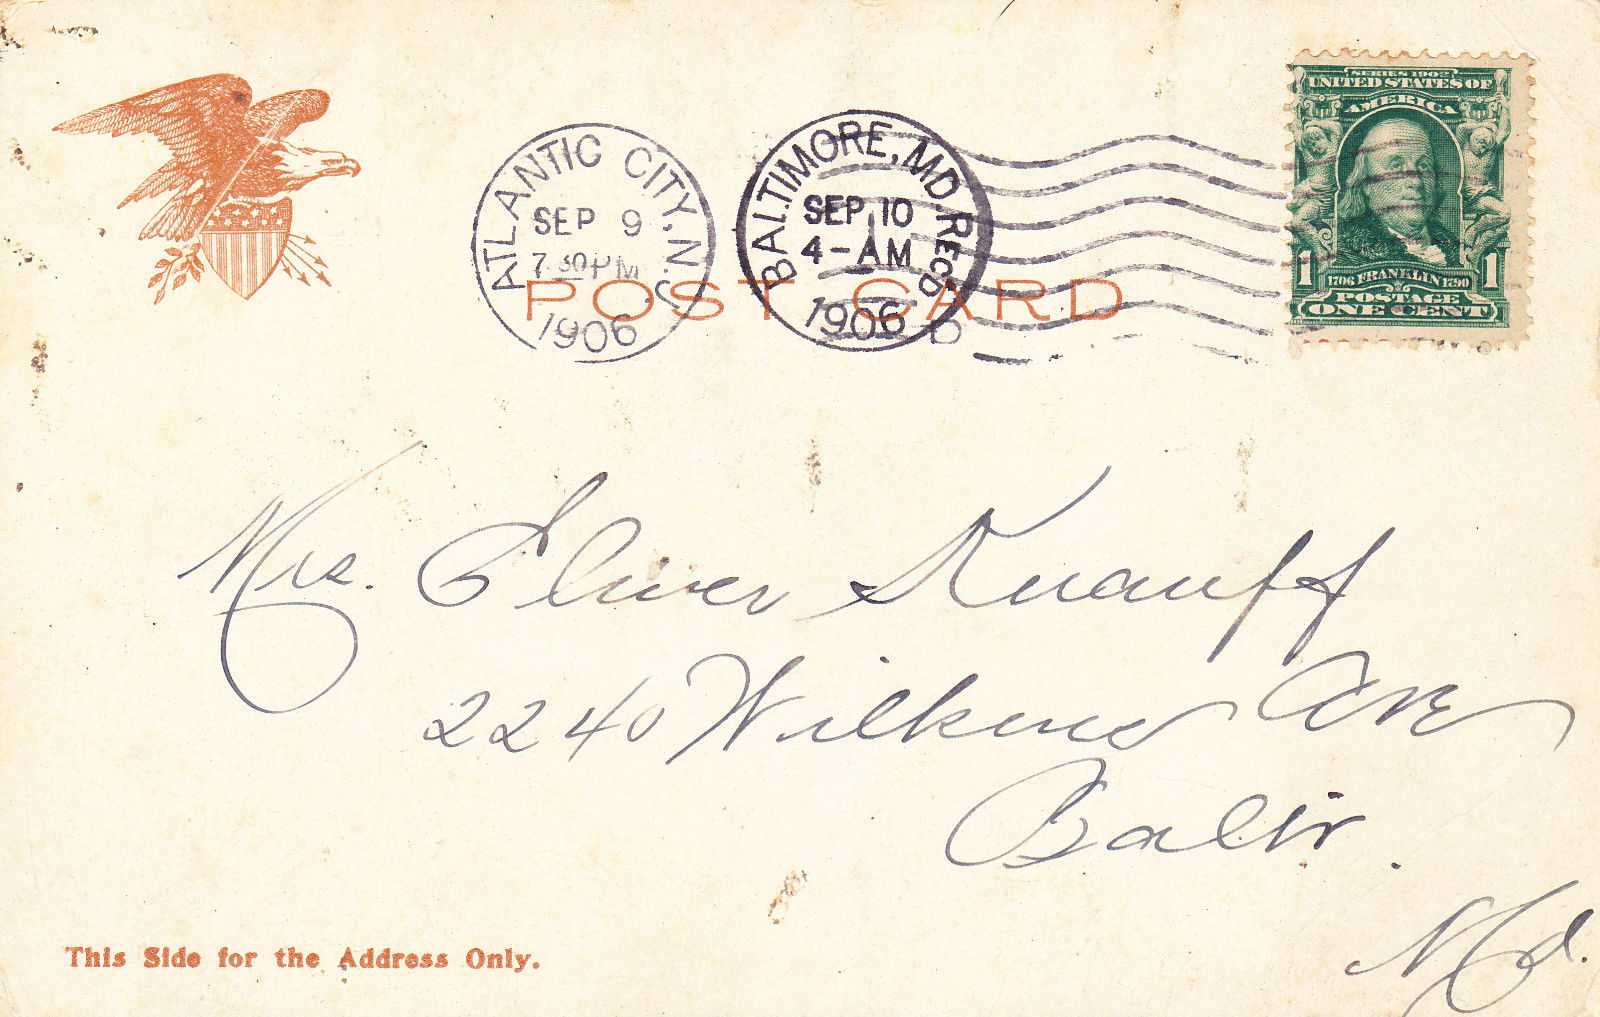 SERIES 1902
UNITED STATES OF
AMERICA
1 1706 FRANKLIN 1790 1
POSTAGE
ONE CENT
ATLANTIC CITY, N.J.
SEP 9
7 30 PM
1906
BALTIMORE, MD. REC'D
SEP 10
4-AM
1906
D
POST CARD
Mrs. Oliver Knauff
2240 Wilkens Ave
Balto.
Md.
This Side for the Address Only.